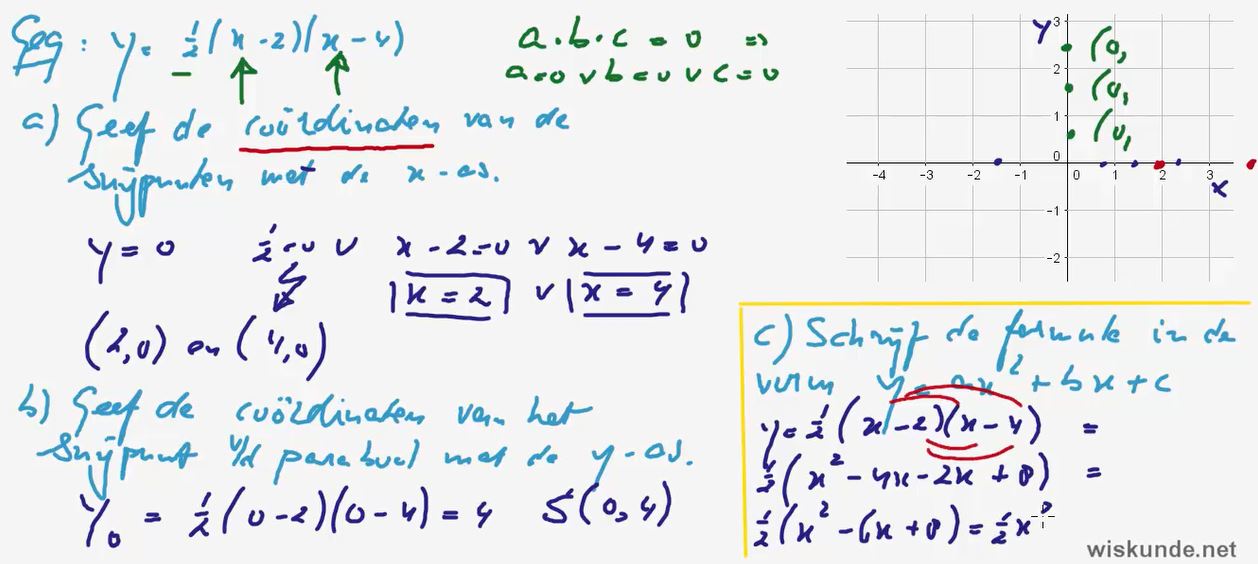 Geg: y = ½(x - 2)(x - 4)
a·b·c = 0 ⇒
a=0 v b=0 v c=0
a) Geef de coördinaten van de
snijpunten met de x-as.
y = 0 ½=0 v x - 2=0 v x - 4=0
x = 2 v x = 4
(2,0) en (4,0)
b) Geef de coördinaten van het
snijpunt v/d parabool met de y-as.
y₀ = ½(0-2)(0-4) = 4 S(0,4)
y
3
(0,
2
(0,
1
(0,
0
-4 -3 -2 -1 0 1 2 3
x
-1
-2
c) Schrijf de formule in de
vorm y = ax² + bx + c
y = ½(x - 2)(x - 4) =
½(x² - 4x - 2x + 8) =
½(x² - 6x + 8) = ½x²
wiskunde.net